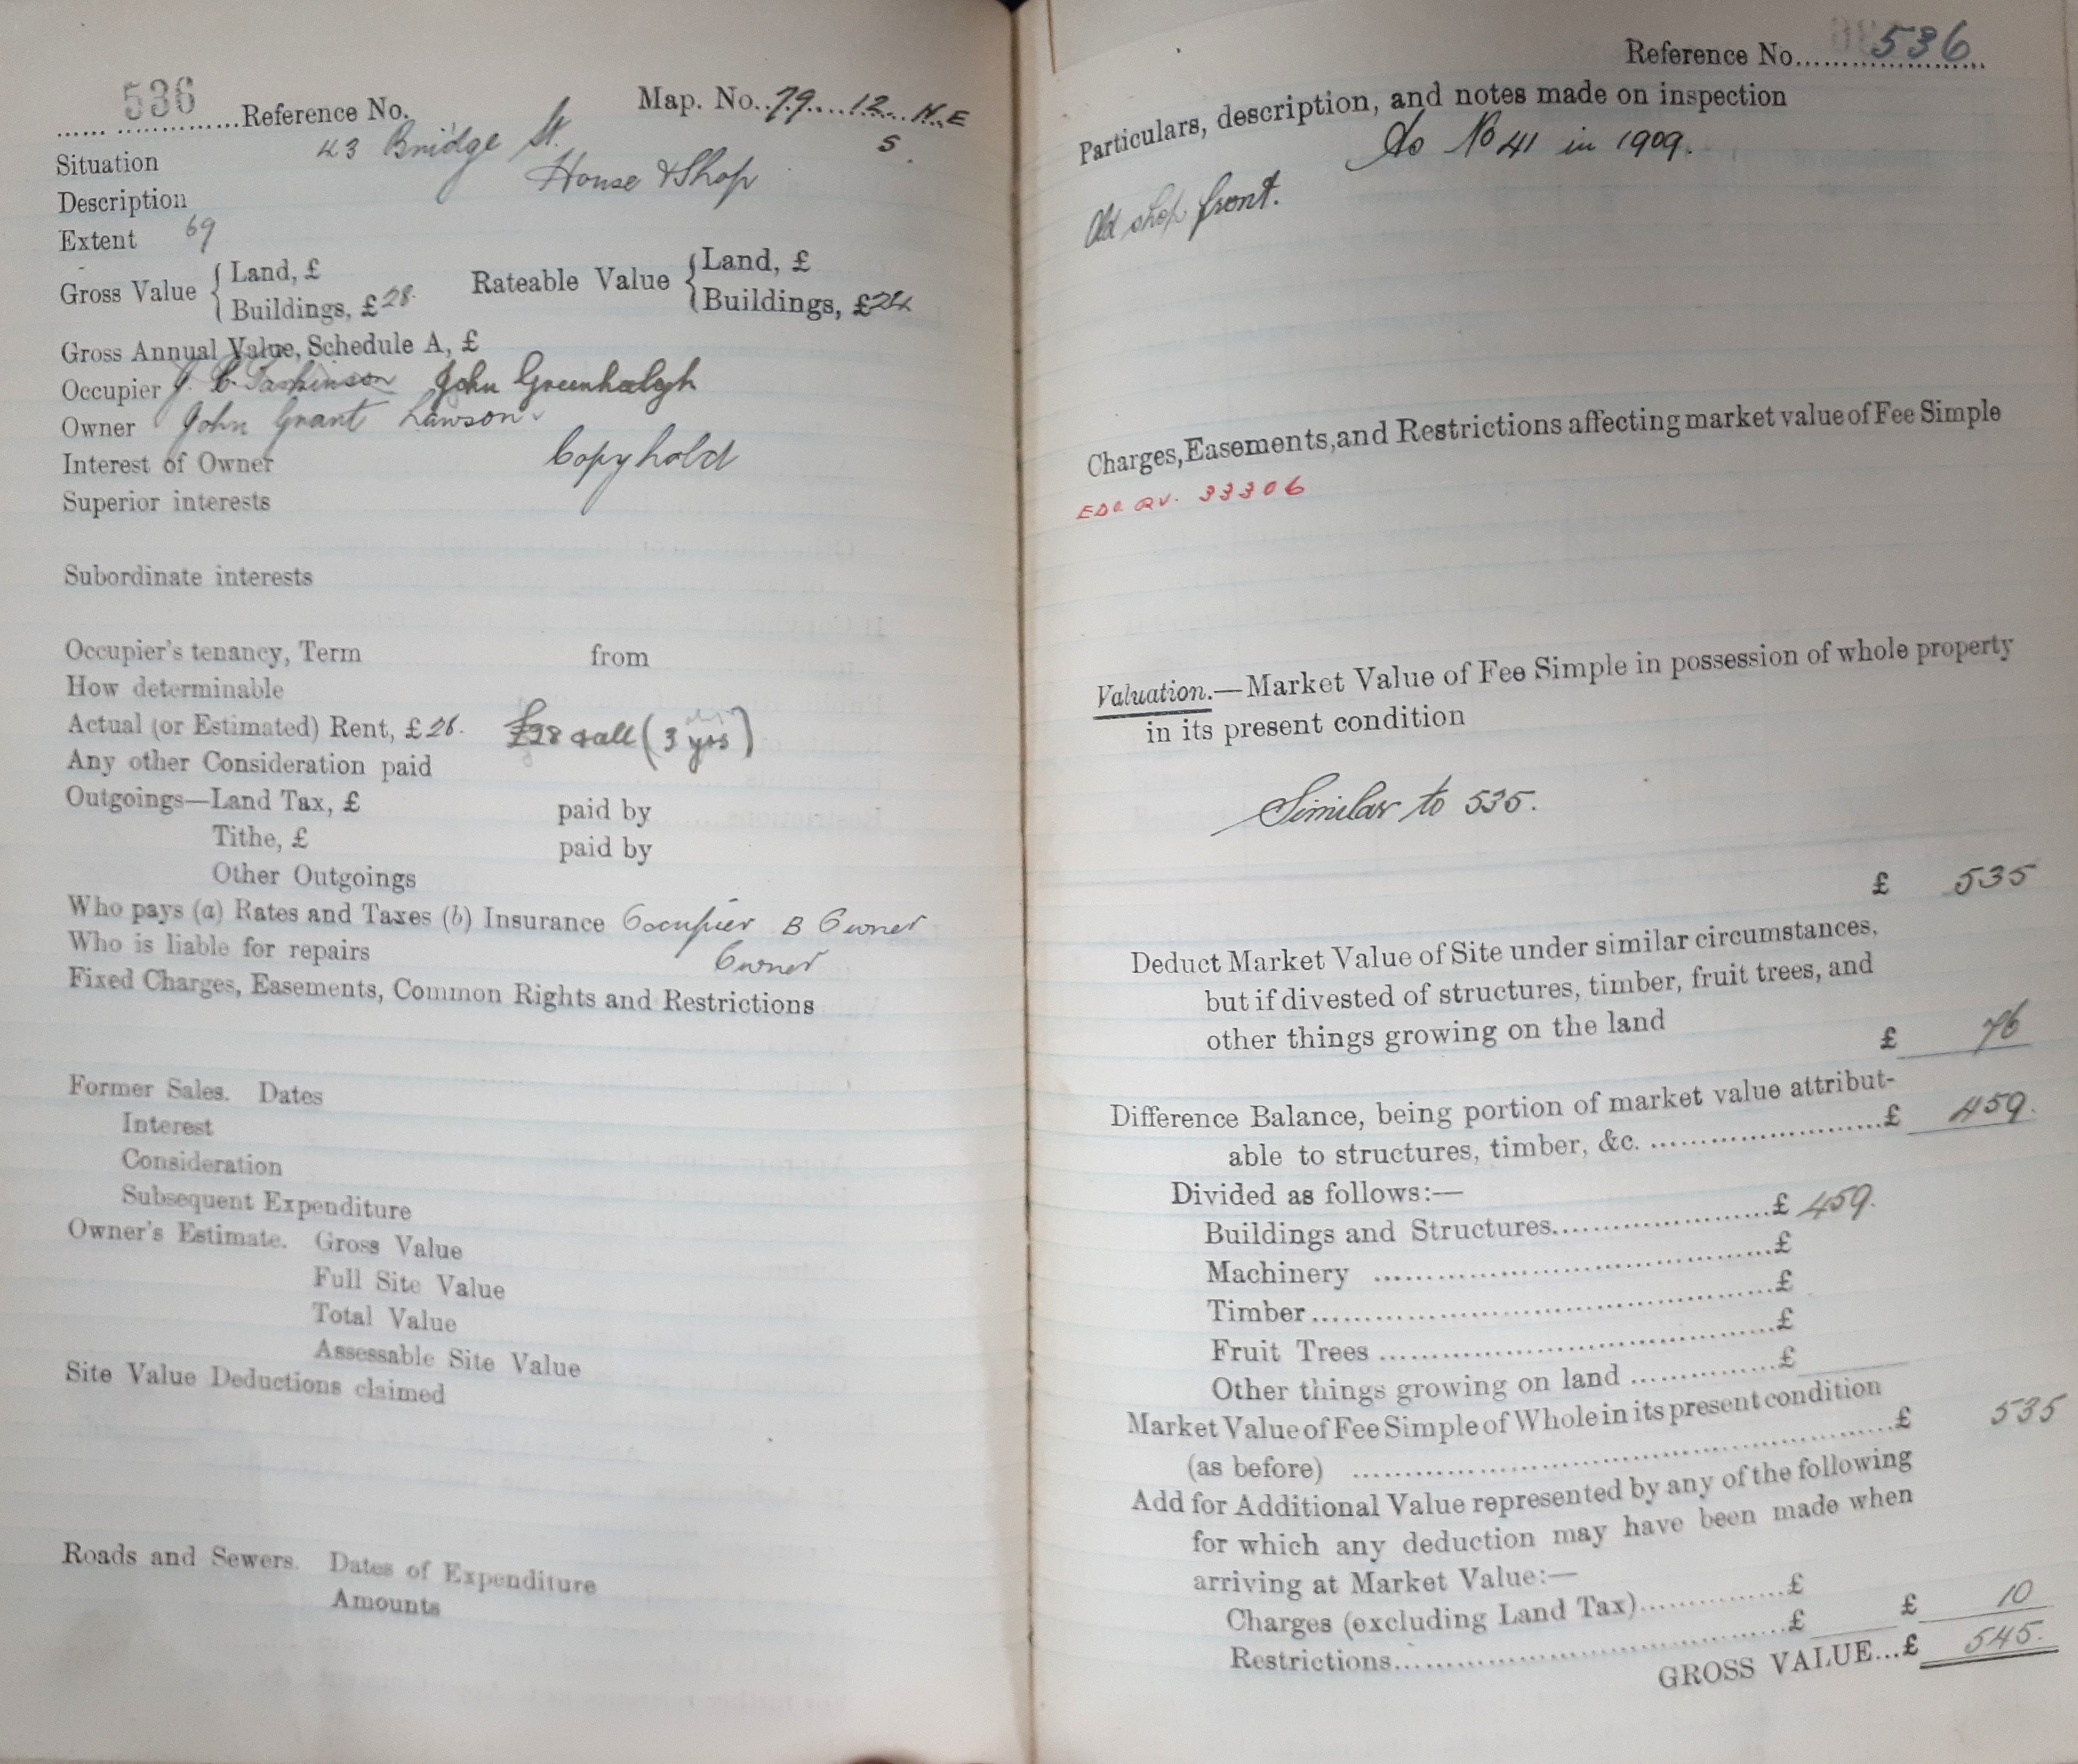 536 Reference No. Map. No. 79 12 N.E
S.
Situation 43 Bridge St.
Description House & Shop
Extent 69
Gross Value { Land, £ Rateable Value { Land, £
Buildings, £ 28. Buildings, £ 24
Gross Annual Value, Schedule A, £
Occupier J. C. Parkinson John Greenhalgh
Owner John Grant Lawson
Interest of Owner Copyhold
Superior interests
Subordinate interests
Occupier's tenancy, Term from
How determinable
Actual (or Estimated) Rent, £ 26. £28 (3 yrs)
Any other Consideration paid
Outgoings—Land Tax, £ paid by
Tithe, £ paid by
Other Outgoings
Who pays (a) Rates and Taxes (b) Insurance Occupier B Owner
Who is liable for repairs Owner
Fixed Charges, Easements, Common Rights and Restrictions
Former Sales. Dates
Interest
Consideration
Subsequent Expenditure
Owner's Estimate. Gross Value
Full Site Value
Total Value
Assessable Site Value
Site Value Deductions claimed
Roads and Sewers. Dates of Expenditure
Amounts
Reference No. 536
Particulars, description, and notes made on inspection
As No 41 in 1909.
Old shop front.
Charges, Easements, and Restrictions affecting market value of Fee Simple
33306
Valuation.—Market Value of Fee Simple in possession of whole property
in its present condition
Similar to 535.
£ 535
Deduct Market Value of Site under similar circumstances,
but if divested of structures, timber, fruit trees, and
other things growing on the land £ 76
Difference Balance, being portion of market value attribut-
able to structures, timber, &c. £ 459.
Divided as follows:—
Buildings and Structures £ 459.
Machinery £
Timber £
Fruit Trees £
Other things growing on land £
Market Value of Fee Simple of Whole in its present condition
(as before) £ 535
Add for Additional Value represented by any of the following
for which any deduction may have been made when
arriving at Market Value:—
Charges (excluding Land Tax) £
Restrictions £ £ 10
GROSS VALUE...£ 545.